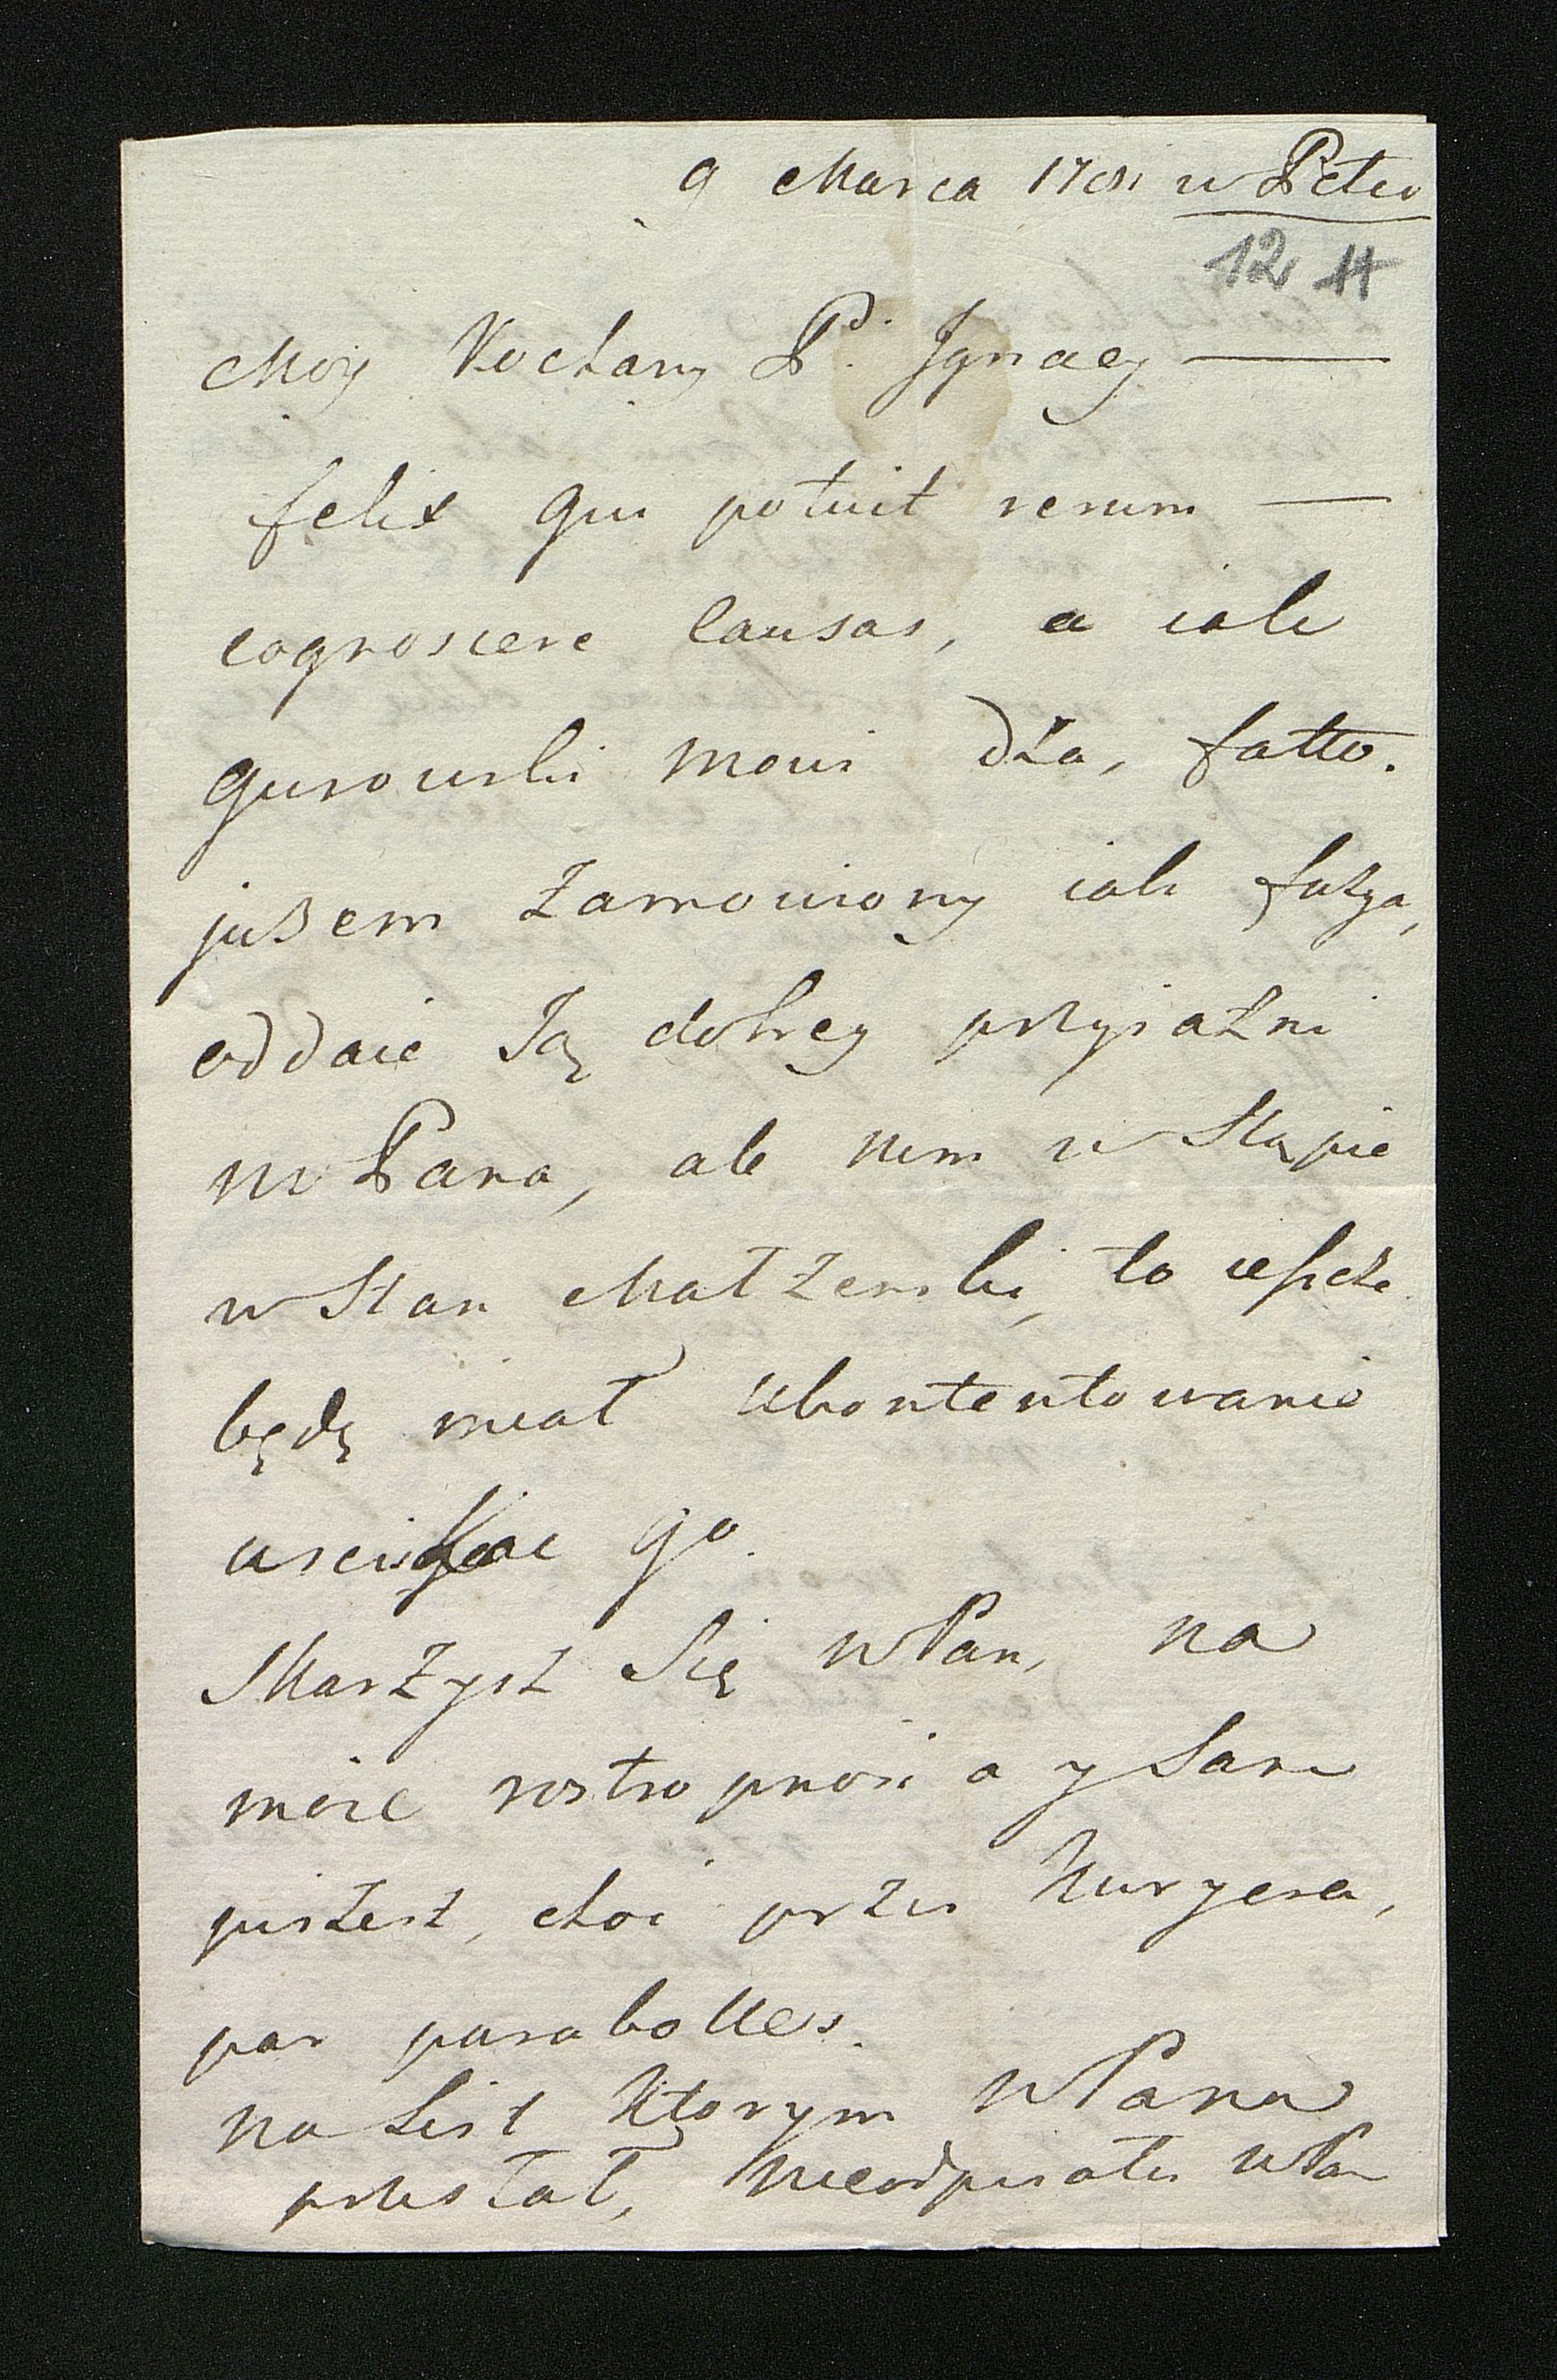 9 Marca 1781 w Peter
12 11
Moy Kochany P. Jgnacy —
felix qui potuit rerum —
cognoscere causas, a iak
Gurowski mowi dża, fatto.
jużem zamowiony iak fuzya,
oddaie Ją dobrey przyiażni
W Pana, ale nim w Stąpie
w Stan Małżenski, to ieszcze
będę miał ukontentowanie
usciskac go.
Marżysz Się WPan, na
moie rostropnosi a y Sam
piszesz, choc przez Kuryera,
par parabolles.
na List Ktorym WPana
przesłał, nieodpisałes WPan